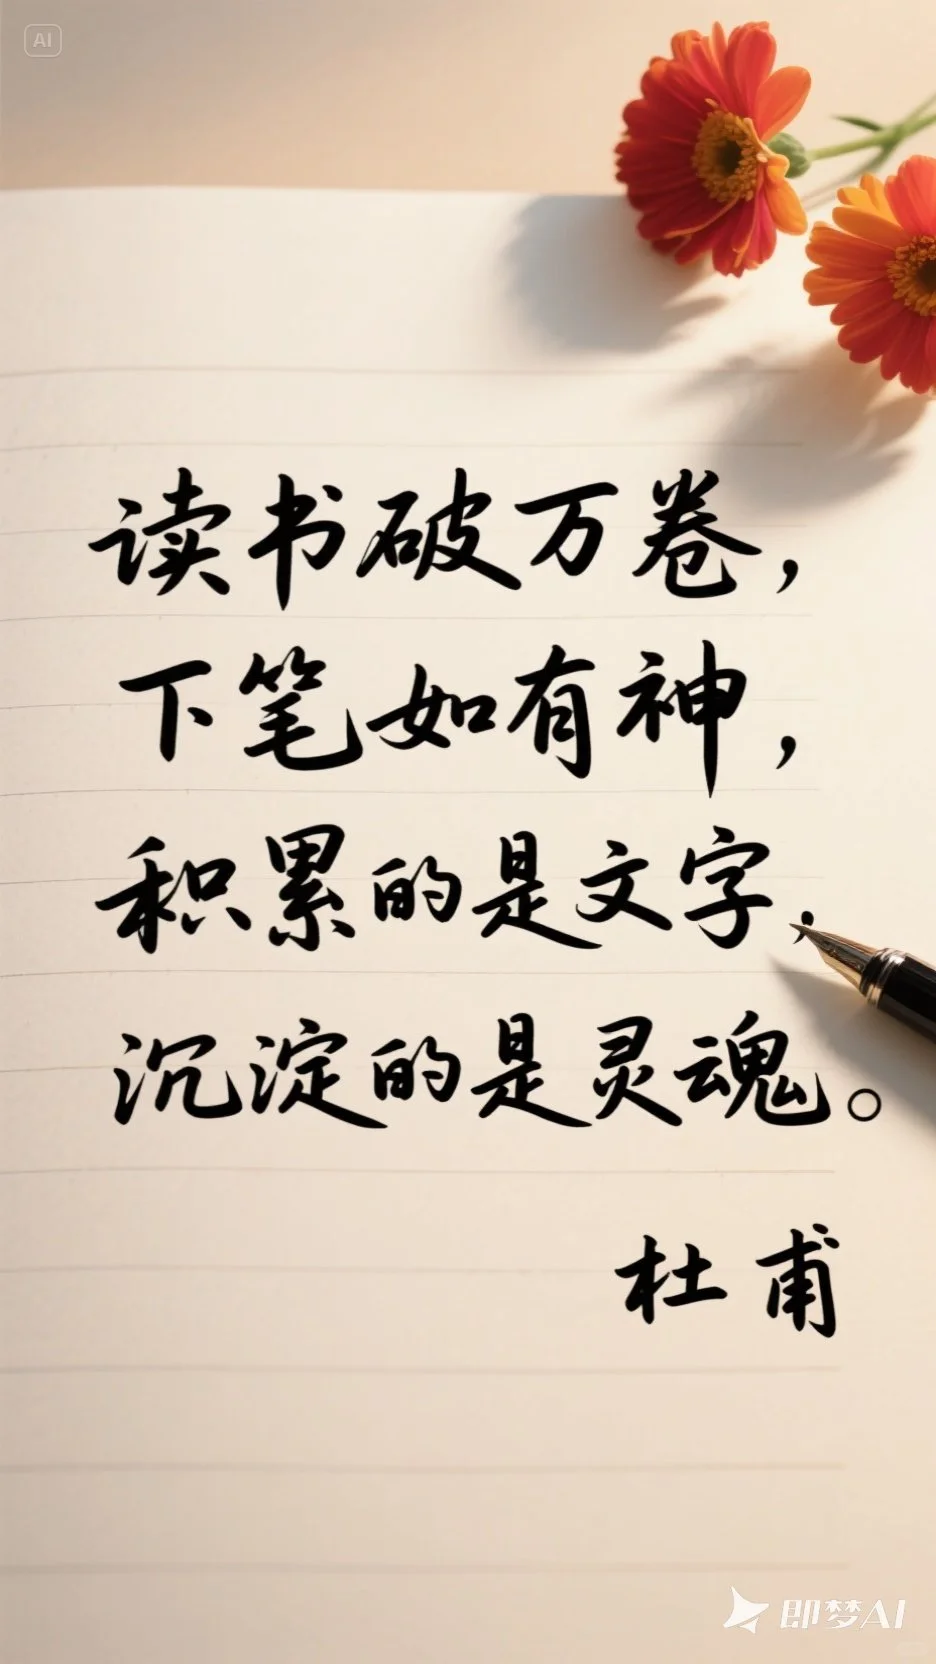 AI
读书破万卷，
下笔如有神，
积累的是文字，
沉淀的是灵魂。
杜甫
即梦AI